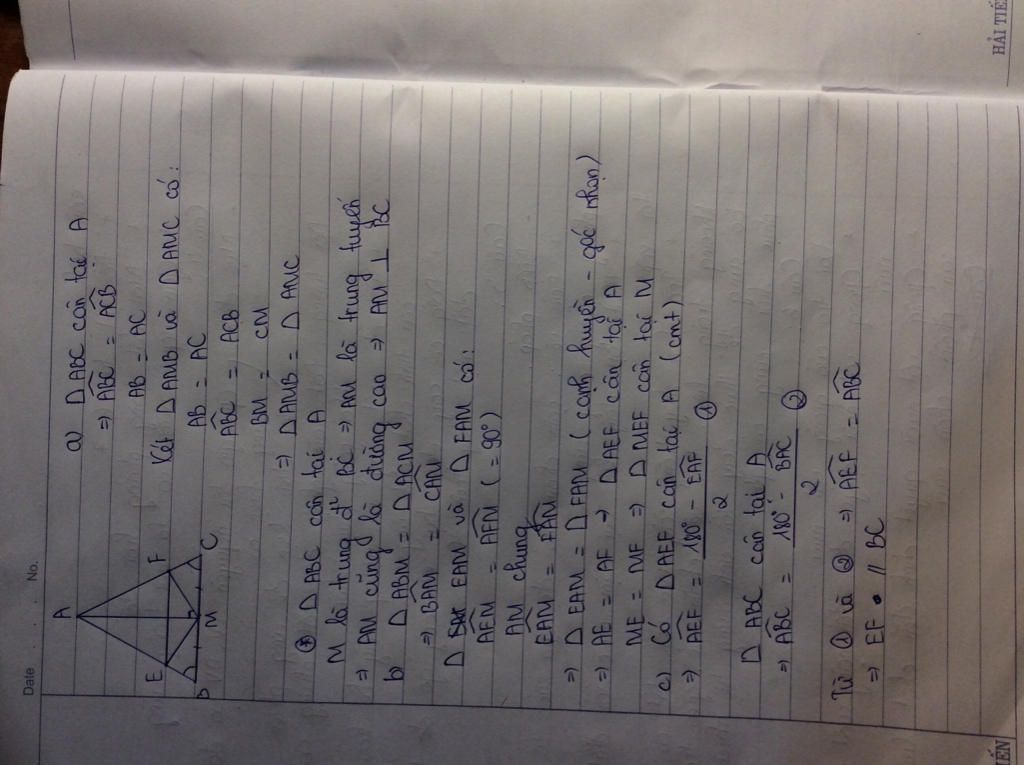 Date
No.
A
E
F
B
M
C
a) Δ ABC cân tại A
=> \widehat{ABC} = \widehat{ACB}
AB = AC
Xét Δ AMB và Δ AMC có:
AB = AC
\widehat{ABC} = ACB
BM = CM
=> Δ AMB = Δ AMC
* Δ ABC cân tại A
M là trung đ' BC => AM là trung tuyến
=> AM cũng là đường cao => AM ⊥ BC
b) Δ ABM = Δ ACM
=> \widehat{BAM} = \widehat{CAM}
Δ EAM và Δ FAM có:
\widehat{AEM} = \widehat{AFM} (= 90°)
AM chung
\widehat{EAM} = \widehat{FAM}
=> Δ EAM = Δ FAM (cạnh huyền - góc nhọn)
=> AE = AF => Δ AEF cân tại A
ME = MF => Δ MEF cân tại M
c) Có Δ AEF cân tại A (cmt)
=> \widehat{AEF} = \frac{180° - \widehat{EAF}}{2} ①
Δ ABC cân tại A
=> \widehat{ABC} = \frac{180° - \widehat{BAC}}{2} ②
Từ ① và ② => \widehat{AEF} = \widehat{ABC}
=> EF // BC
HẢI TIẾ
IẾN